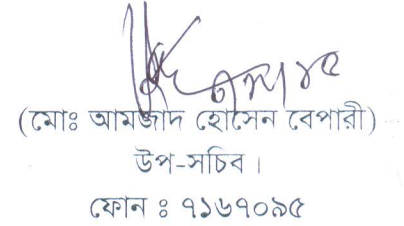 (মোঃ আমজাদ হোসেন বেপারী)
উপ-সচিব।
ফোন ঃ ৭১৬৭০৯৫